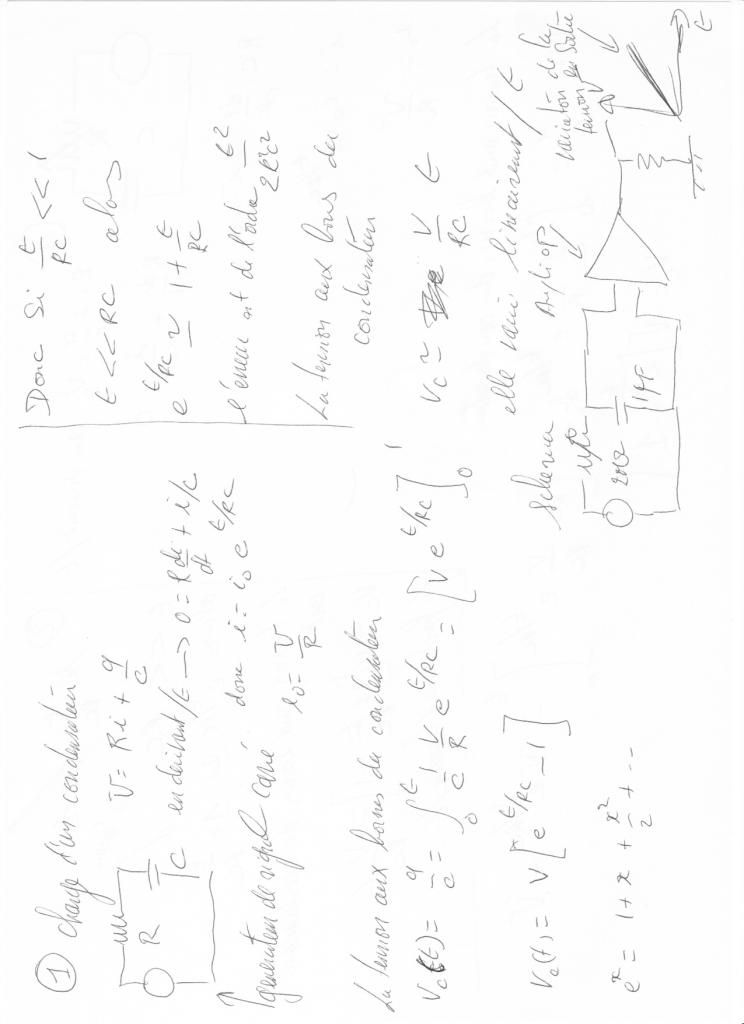 ① charge d'un condensateur
R
C
V = Ri + q/c
en dérivant /t → 0 = R di/dt + i/c
generateur de signal carré donc i = i₀ e^t/RC
i₀ = V/R
La tension aux bornes du condensateur
Vc(t) = q/c = ∫₀^t 1/c V/R e^t/RC = [V e^t/RC]₀
Vc(t) = V[e^t/RC - 1]
e^x = 1 + x + x²/2 + ...
Donc Si t/RC << 1
t << RC alors
e^t/RC ≃ 1 + t/RC
l'erreur est de l'ordre t²/2R²C²
La tension aux bornes du
condensateur
Vc ≃ V/RC t
elle varie linéairement / t
Schema
Ampli OP
variation de la
tension en sortie
1µF
t